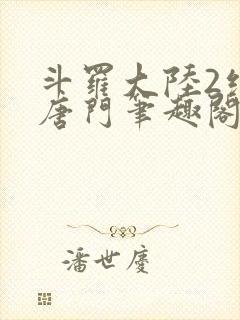 斗羅大陸2絕
唐門筆趣閣
潘世慶